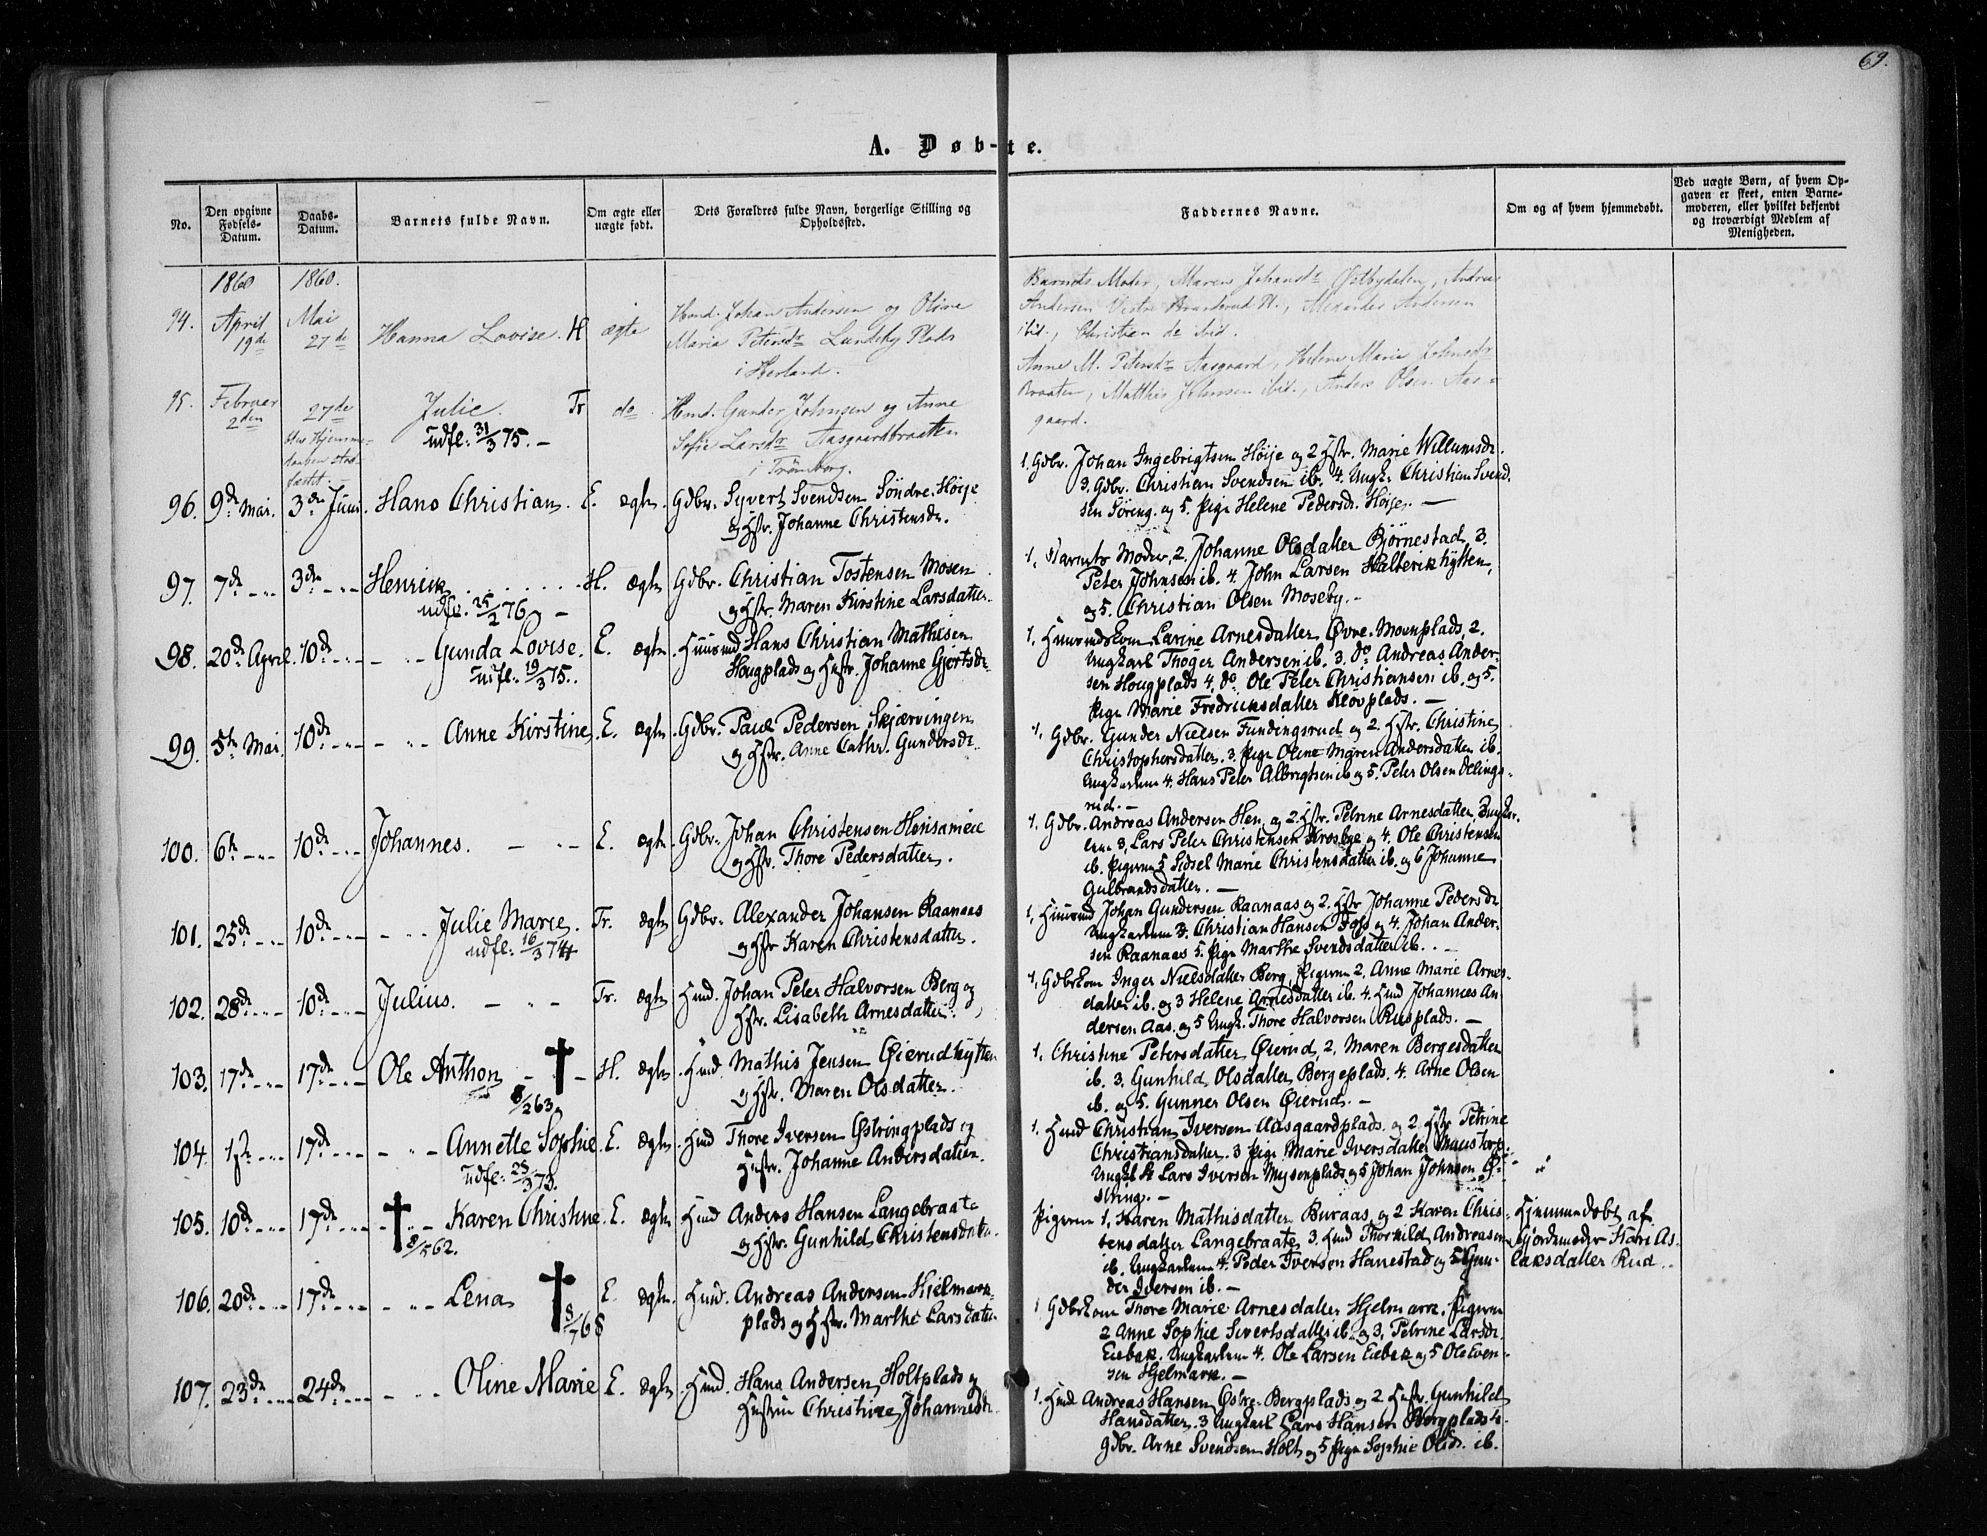 69.
A. Døb-te.
No.
Den opgivne Fødsels-Datum.
Daabs-Datum.
Barnets fulde Navn.
Om ægte eller uægte født.
Dets Forældres fulde Navn, borgerlige Stilling og Opholdssted.
Faddernes Navne.
Om og af hvem hjemmedøbt.
Ved uægte Børn, af hvem Opgaven er skeet, enten Barnemoderen, eller hvilket bekjendt og troværdigt Medlem af Menigheden.
1860 1860.
94. April 19de Mai 27de Hanna Lovise. H ægte
Hmd. Johan Andersen og Oline
Maria Petersdr Lundeby Plads
i Herland.
Barnets Moder, Maren Johansdr Østbydalen,
Andersen Vestre Pl., Alexander Andersen
ibid., Christian do ibid.
95. Februar 2den 27de Julie. Tr do
udfl. 31/3 75. –
Hmd. Gunder Johnsen og Anne
Sofie Larsdr Aasgaardbraatten
i Trømborg.
Anne M. Petersdr Aasgaard, Helene Maria Johnsdr
Braaten, Matthis Johnsen ibid., Anders Olsen Aas-
gaard.
96. 9de Mai. 3de Juni. Hans Christian. E. ægte.
Gdbr. Syvert Svendsen Søndre-Høije
og Hstr. Johanne Christensdr.
1. Gdbr. Johan Ingebrigtsen Høije og 2 Hstr. Marie Willumsdr.
3. Gdbr. Christian Svendsen ib. 4. Ungk. Christian Svend-
sen Søreng. og 5. Pige Helene Pedersdr. Høije. –
97. 7de 3de Henrick H. Ægte
udfl. 25/2 76 –
Gdbr. Christian Tostensen Mosen
og Hstr. Maren Kirstine Larsdatter.
1. Barnets Moder, 2. Johanne Olsdatter Bjørnestad, 3.
Peter Johnsen ib. 4. John Larsen
og 5. Christian Olsen Moseby. –
98. 20de April. 10de Gunda Lovise. E. ægte.
udfl. 19/3 75.
Huusmd Hans Christian Mathisen
Hougplads og Hustr. Johanne Gjertsdr.
1. Larine Arnesdatter Øvre-Moenplads, 2.
Ungkarl Thøger Andersen ib. 3. do Andreas Ander-
sen Hougplads 4. do Ole Peter Christiansen ib. og 5.
Pige Marie Fredriksdatter Kløvplads. –
99. 5te Mai. 10de Anne Kirstine. E. ægte.
Gdbr. Paul Pedersen Skjærvingen
og Hstr. Anne Cathr. Gundersdr.
1. Gdbr. Gunder Nielsen Fundingsrud og 2. Hstr. Christine
Christophersdatter. 3. Pige Oline Maren Andersdatter ib.
Ungkarlene 4. Hans Peter Albrigtsen ib og 5. Peter Olsen Delings-
rud. –
100. 6te 10de Johannes. E. ægte.
Gdbr. Johan Christensen
og Hstr. Thore Pedersdatter.
1. Gdbr. Andreas Andersen Hen, og 2. Hstr. Petrine Arnesdatter. Ungkar-
lene 3. Lars Peter Christensen og 4. Ole Christensen
ib. Pigerne 5 Sidsel Marie Christensdatter ib. og 6 Johanne
Gulbrandsdatter. –
101. 25de 10de Julie Marie. Tr. Ægte
udfl. 16/3 74
Gdbr. Alexander Johansen Raanaas
og Hstr Karen Christensdatter.
1, Huusmd Johan Gundersen Raanaas og 2. Hstr Johanne Pedersdr
Ungkarlene 3. Christian Hansen Foss og 4. Johan Ander-
sen Raanaas 5. Pige Marthe Svendsdatter ib. –
102. 28de 10de Julius. Tr. Ægte
Hmd. Johan Peter Halvorsen Berg og
Hstr. Lisabeth Arnesdatter.
1, Gdbrkone Inger Nielsdatter Berg, Pigerne 2. Anne Marie Arnes-
datter ib. og 3 Helene Arnesdatter ib. 4. Hmd Johannes An-
dersen Aas. og 5 Ungk. Thore Halvorsen Rusplads. –
103. 17de 17de Ole Anthon H. ægte.
8/2 63
Hmd. Mathis Jensen Øierudhytten
og Hstr. Maren Olsdatter.
1. Christine Petersdatter Øierud, 2. Maren Bergesdatter
ib. 3. Gunhild Olsdatter Bergeplads. 4. Arne Olsen
ib. og 5. Gunner Olsen Øierud. –
104. 1ste 17de Annette Sophie. E. Ægte.
udfl. 25/3 73.
Hmd Thore Iversen Østringplads og
Hustr. Johanne Andersdatter.
1. Hmd Christian Iversen Aasgaardplads. og 2. Hstr Petrine
Christiansdatter. 3 Pige Marie Iversdatter
Ungk 4 Lars Iversen Mysenplads og 5 Johan Johnsen Ø-
string. –
105. 10de 17de Karen Christine. E. Ægte.
8/5 62.
Hmd Anders Hansen Langebraate
og Hstr. Gunhild Christensdatter.
Pigerne 1. Karen Mathisdatter Buraas, og 2 Karen Chris-
tensdatter Langebraate, 3. Hmd Thorkild Andreasen
ib. Ungkarlene 4. Peder Iversen Hanestad og 5 Gun-
der Iversen ib. –
Hjemmedøbt af
Gjordemoder Kari As-
laksdatter Rud.
106. 20de 17de Lena E. ægte.
8/7 68
Hmd. Andreas Andersen Hjelmark-
plads og Hstr. Marthe Larsdatter.
1 Gdbrkone Thore Marie Arnesdatter Hjelmark. Pigerne
2 Anne Sophie Sivertsdatter ib. og 3. Petrine Larsdr.
Eebæk. Ungkarlene 4. Ole Larsen Eebæk og 5 Ole Even-
sen Hjelmark. –
107. 23de 24de Oline Marie E. ægte.
Hmd. Hans Andersen, Holtplads og
Hustru Christine Johannesdr.
1. Hmd Andreas Hansen, Østre-Bergplads og 2 Hustr. Gunhild
Hansdatter. 3 Ungkarl Lars Hansen Bergplads 4.
Gdbr. Arne Svendsen Holt og 5 Pige Sophie Olsdr. ib.